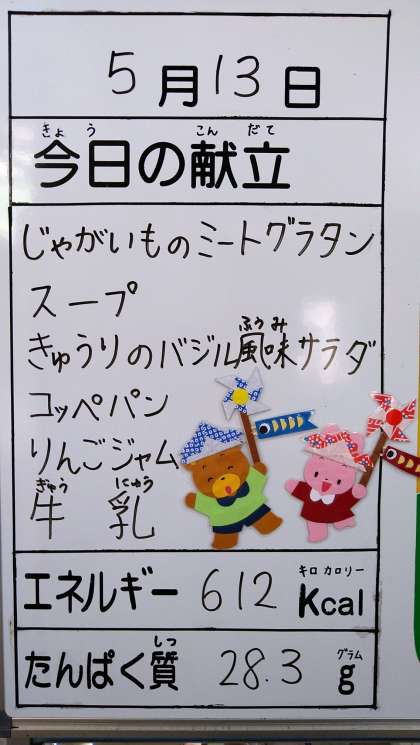 5月13日
きょう こんだて
今日の献立
じゃがいものミートグラタン
スープ
ふうみ
きゅうりのバジル風味サラダ
コッペパン
りんごジャム
ぎゅう にゅう
牛 乳
キロカロリー
エネルギー 612 Kcal
しつ グラム
たんぱく質 28.3 g